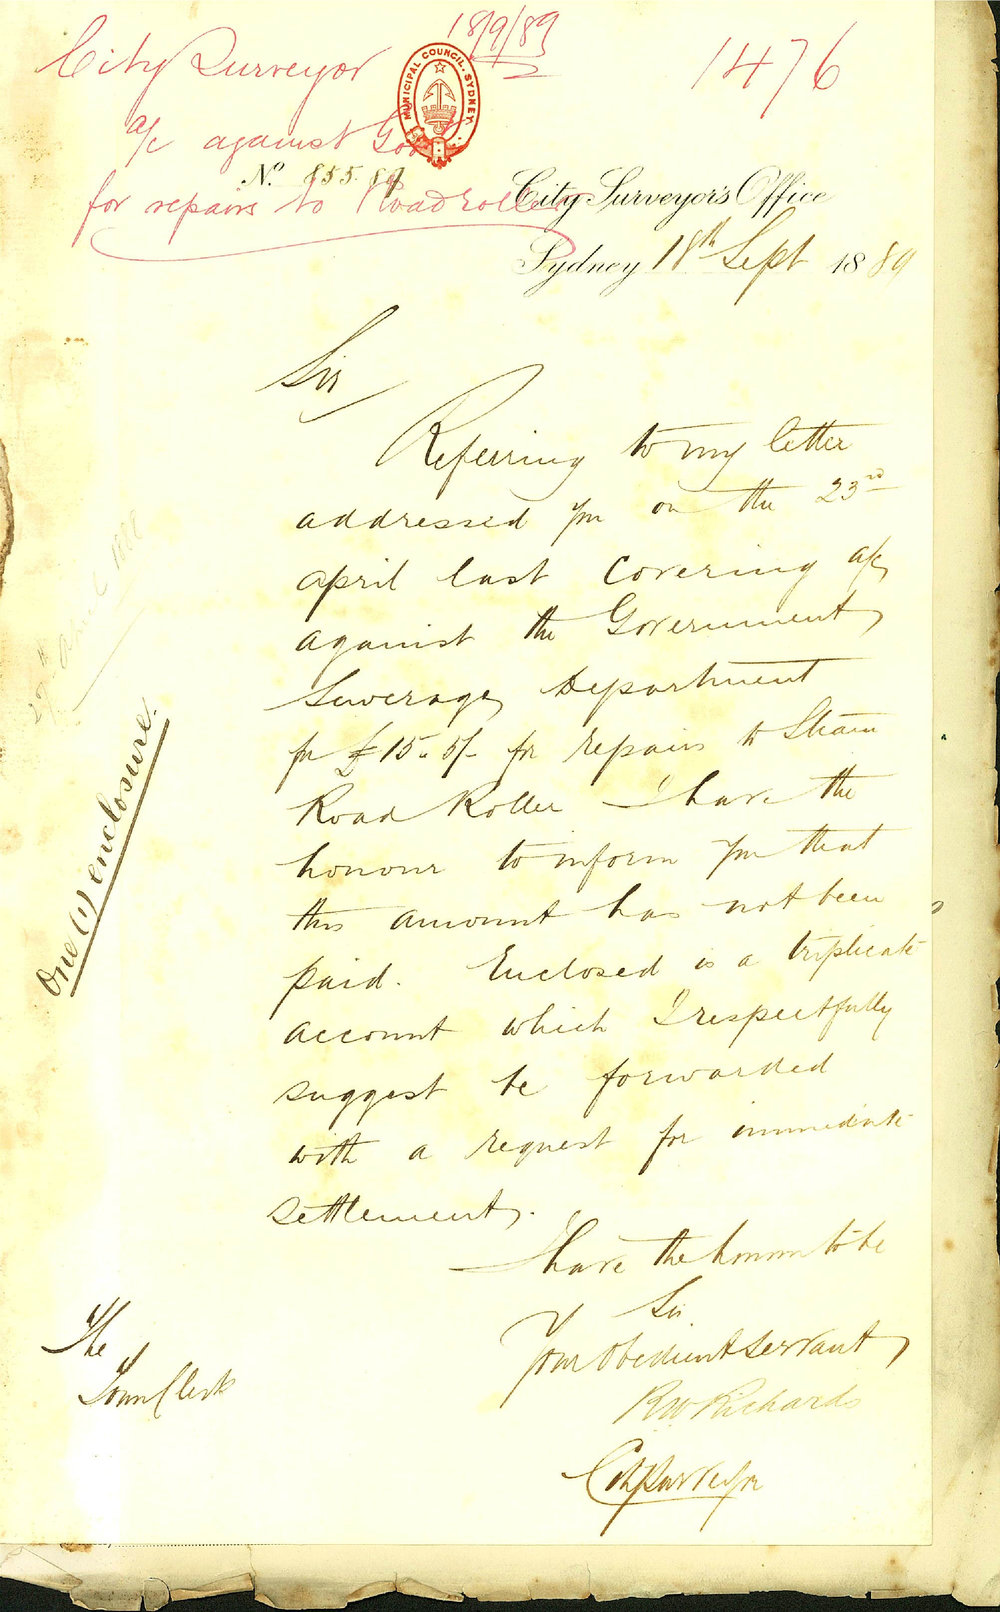 18/9/89
City Surveyor
1476
MUNICIPAL COUNCIL. SYDNEY.
a/c against Govt
for repairs to Roadroller
No. 855.89
City Surveyor's Office
Sydney 18th Sept 1889
Sir
Referring to my letter
addressed you on the 23rd
April last covering a/c
against the Government
Sewerage Department
for £15.5/- for repairs to Steam
Road Roller I have the
honour to inform you that
this amount has not been
paid. Enclosed is a triplicate
account which I respectfully
suggest be forwarded
with a request for immediate
settlement.
I have the honour to be
Sir
Your obedient servant
RW Richards
City Surveyor
The
Town Clerk
One (1) enclosure.